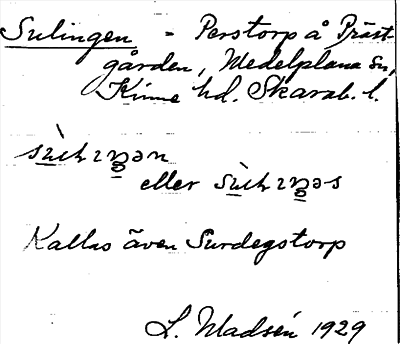 Sulingen - Perstorp å Präst-
gården, Medelplana sn,
Kinne hd. Skarab. l.
eller
Kallas även Surdegstorp
L. Madsén 1929